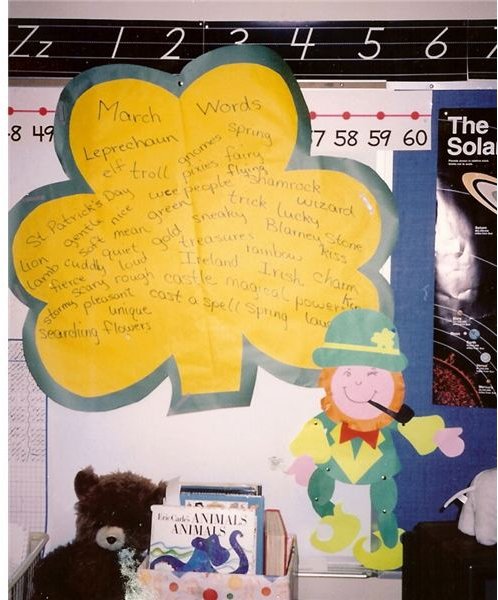 Zz 1 2 3 4 5 6
48 49
57 58 59 60
March Words
Leprechaun gnomes Spring
elf troll pixies fairy
wee people flying
St. Patrick's Day nice green shamrock wizard
gentle mean sneaky trick lucky
lion soft gold Blarney Stone
lamb cuddly quiet treasures rainbow kiss
fierce loud Ireland Irish charm
scary rough castle magical powers
stormy pleasant cast a spell Spring
unique
searching flowers
The
Sola
Eric Carle's ANIMALS
ANIMALS